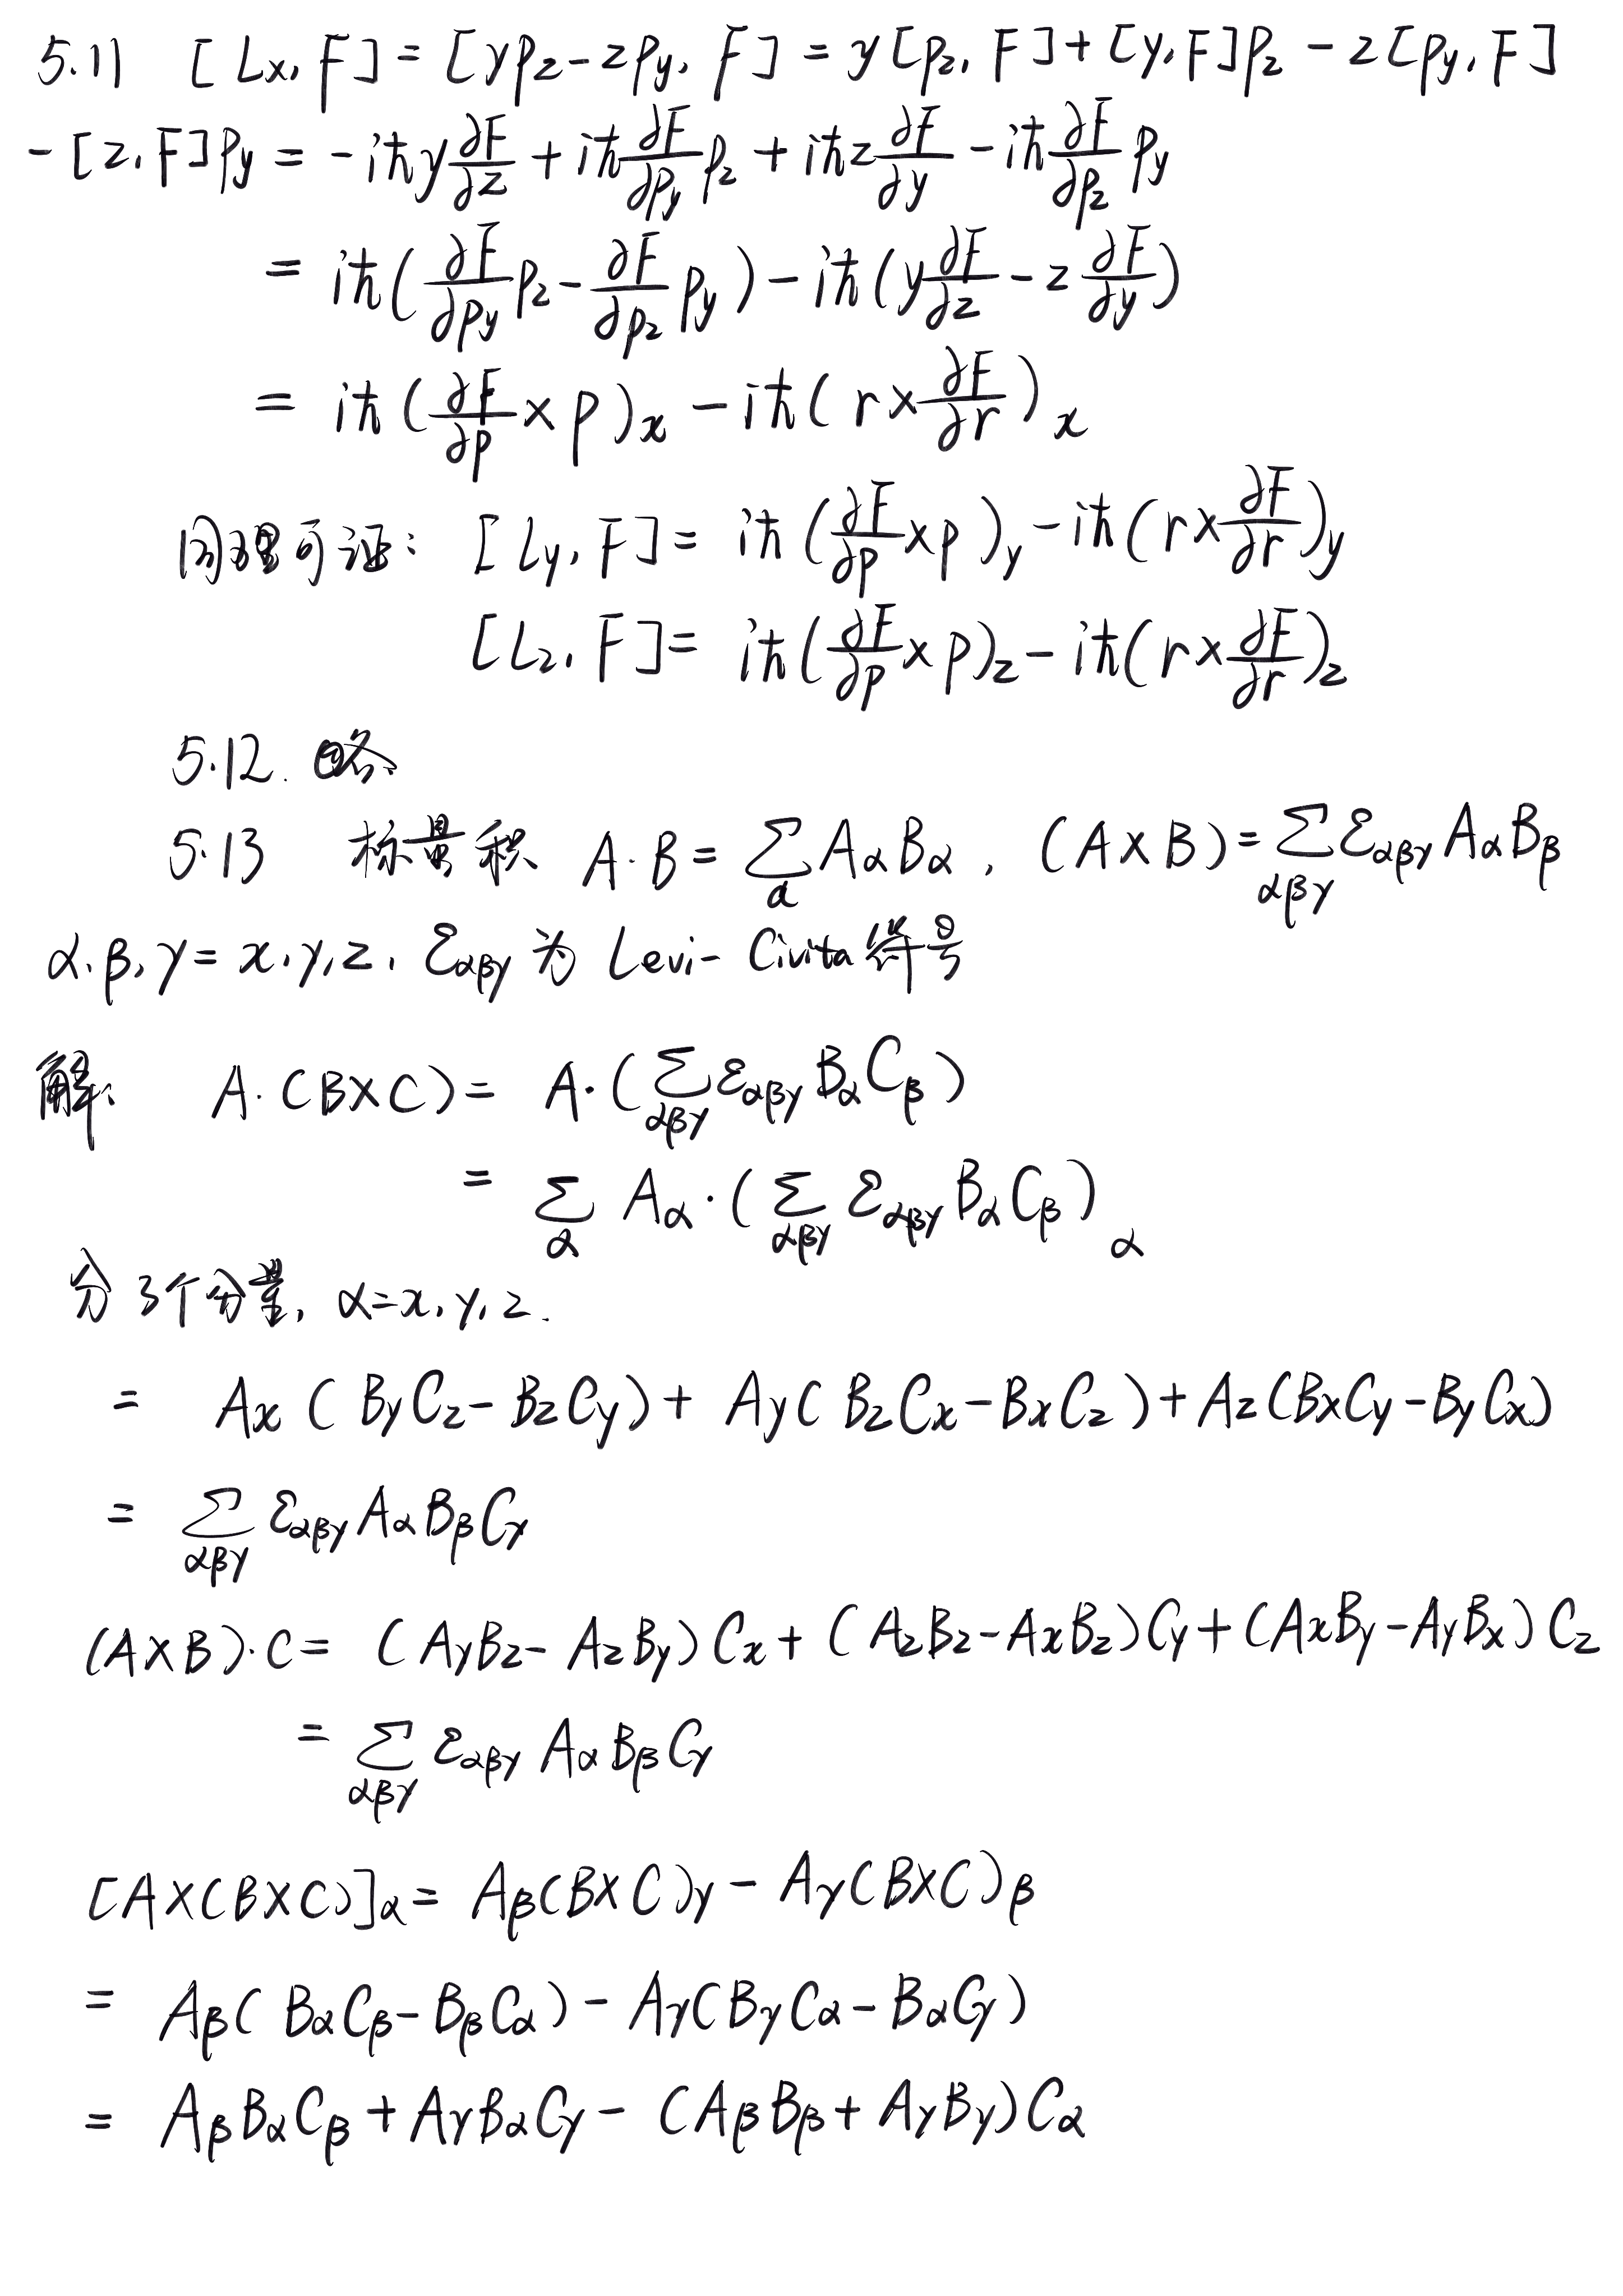 5.11 [Lx, F] = [yp_z - zp_y, F] = y[p_z, F] + [y, F]p_z - z[p_y, F]
- [z, F]p_y = -iħy ∂F/∂z + iħ ∂F/∂p_y p_z + iħz ∂F/∂y - iħ ∂F/∂p_z p_y
= iħ(∂F/∂p_y p_z - ∂F/∂p_z p_y) - iħ(y ∂F/∂z - z ∂F/∂y)
= iħ(∂F/∂p × p)_x - iħ(r × ∂F/∂r)_x
同理可证: [Ly, F] = iħ(∂F/∂p × p)_y - iħ(r × ∂F/∂r)_y
[Lz, F] = iħ(∂F/∂p × p)_z - iħ(r × ∂F/∂r)_z
5.12. 略
5.13 标量积 A·B = ∑_α A_α B_α, (A×B) = ∑_αβγ ε_αβγ A_α B_β
α、β, γ = x, y, z, ε_αβγ 为 Levi-Civita 符号
解: A·(B×C) = A·(∑_αβγ ε_αβγ B_α C_β)
= ∑_α A_α·(∑_αβγ ε_αβγ B_α C_β)_α
分3个分量, α=x, y, z.
= A_x(B_yC_z - B_zC_y) + A_y(B_zC_x - B_xC_z) + A_z(B_xC_y - B_yC_x)
= ∑_αβγ ε_αβγ A_α B_β C_γ
(A×B)·C = (A_yB_z - A_zB_y)C_x + (A_zB_z - A_xB_z)C_y + (A_xB_y - A_yB_x)C_z
= ∑_αβγ ε_αβγ A_α B_β C_γ
[A×(B×C)]_α = A_β(B×C)_γ - A_γ(B×C)_β
= A_β(B_αC_β - B_βC_α) - A_γ(B_γC_α - B_αC_γ)
= A_βB_αC_β + A_γB_αC_γ - (A_βB_β + A_γB_γ)C_α